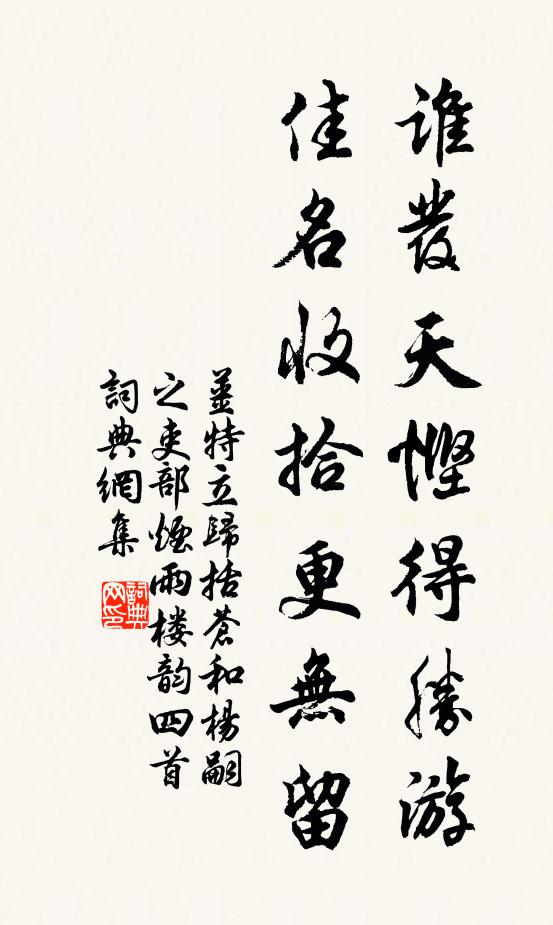 誰發天慳得勝游
佳名收拾更無留
姜特立歸括蒼和楊嗣
之吏部煙雨楼韵四首
詞典網集
詞典
网印